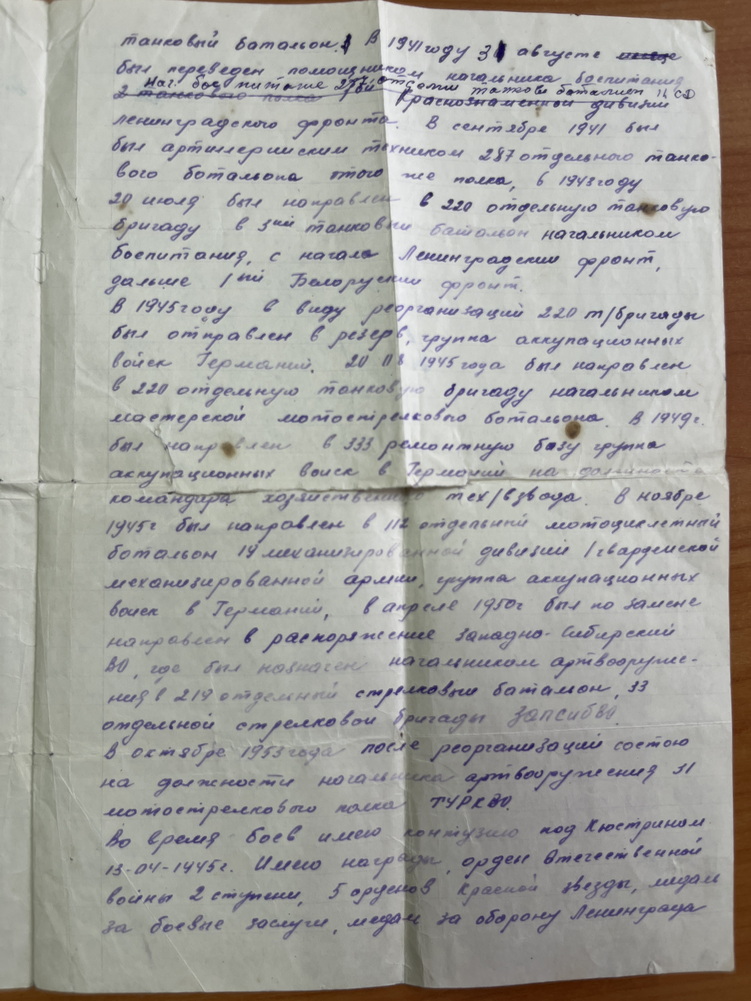 танковый батальон. В 1941 году 31 августе
был переведен помощником начальника боепитания
Нач. боепитание 287 отдолти танковы баталион 11 СД
2 танкового полка Краснознаменной дивизии
Ленинградского фронта. В сентябре 1941 был
был артиллерийским техником 287 отдельного танко-
вого ботальона этого же полка, в 1943 году
20 июля был направлен в 220 отдельную танковую
бригаду в 3ий танковый баталион начальником
боепитания, с начала Ленинградский фронт,
дальше 1ый Белоруский фронт.
В 1945 году в виду реорганизаций 220 т/бригады
был отправлен в резерв, группа аккупационных
войск Германий. 20 08 1945 года был направлен
в 220 отдельную танковую бригаду начальником
мастерской мотострелкового ботальона. В 1949 г.
был направлен в 333 ремонтную базу группа
аккупационных войск в Германий на должность
командара хозяйственного тех/взвода. В ноябре
1945г был направлен в 112 отдельный мотоциклетный
ботальон 19 механизированной дивизий 1 гвардейской
механизированной армии, группа аккупационных
войск в Германий, в апреле 1950г был по замене
направлен в распоряжение Западно-Сибирский
ВО, где был назначен начальником артвооруже-
ния в 219 отдельный стрелковый баталион, 33
отдельной стрелковой бригады ЗАПСИБВО.
В октябре 1953 года после реорганизаций состою
на должности начальника артвооружения 31
мотострелкового полка ТУРКВО.
Во время боев имею контузию под Кюстрином
13-04-1445г. Имею награды, орден Отечественной
войны 2 ступени, 5 орденов Красной звезды, медал
за боевые заслуги, медал за оборону Ленинграда